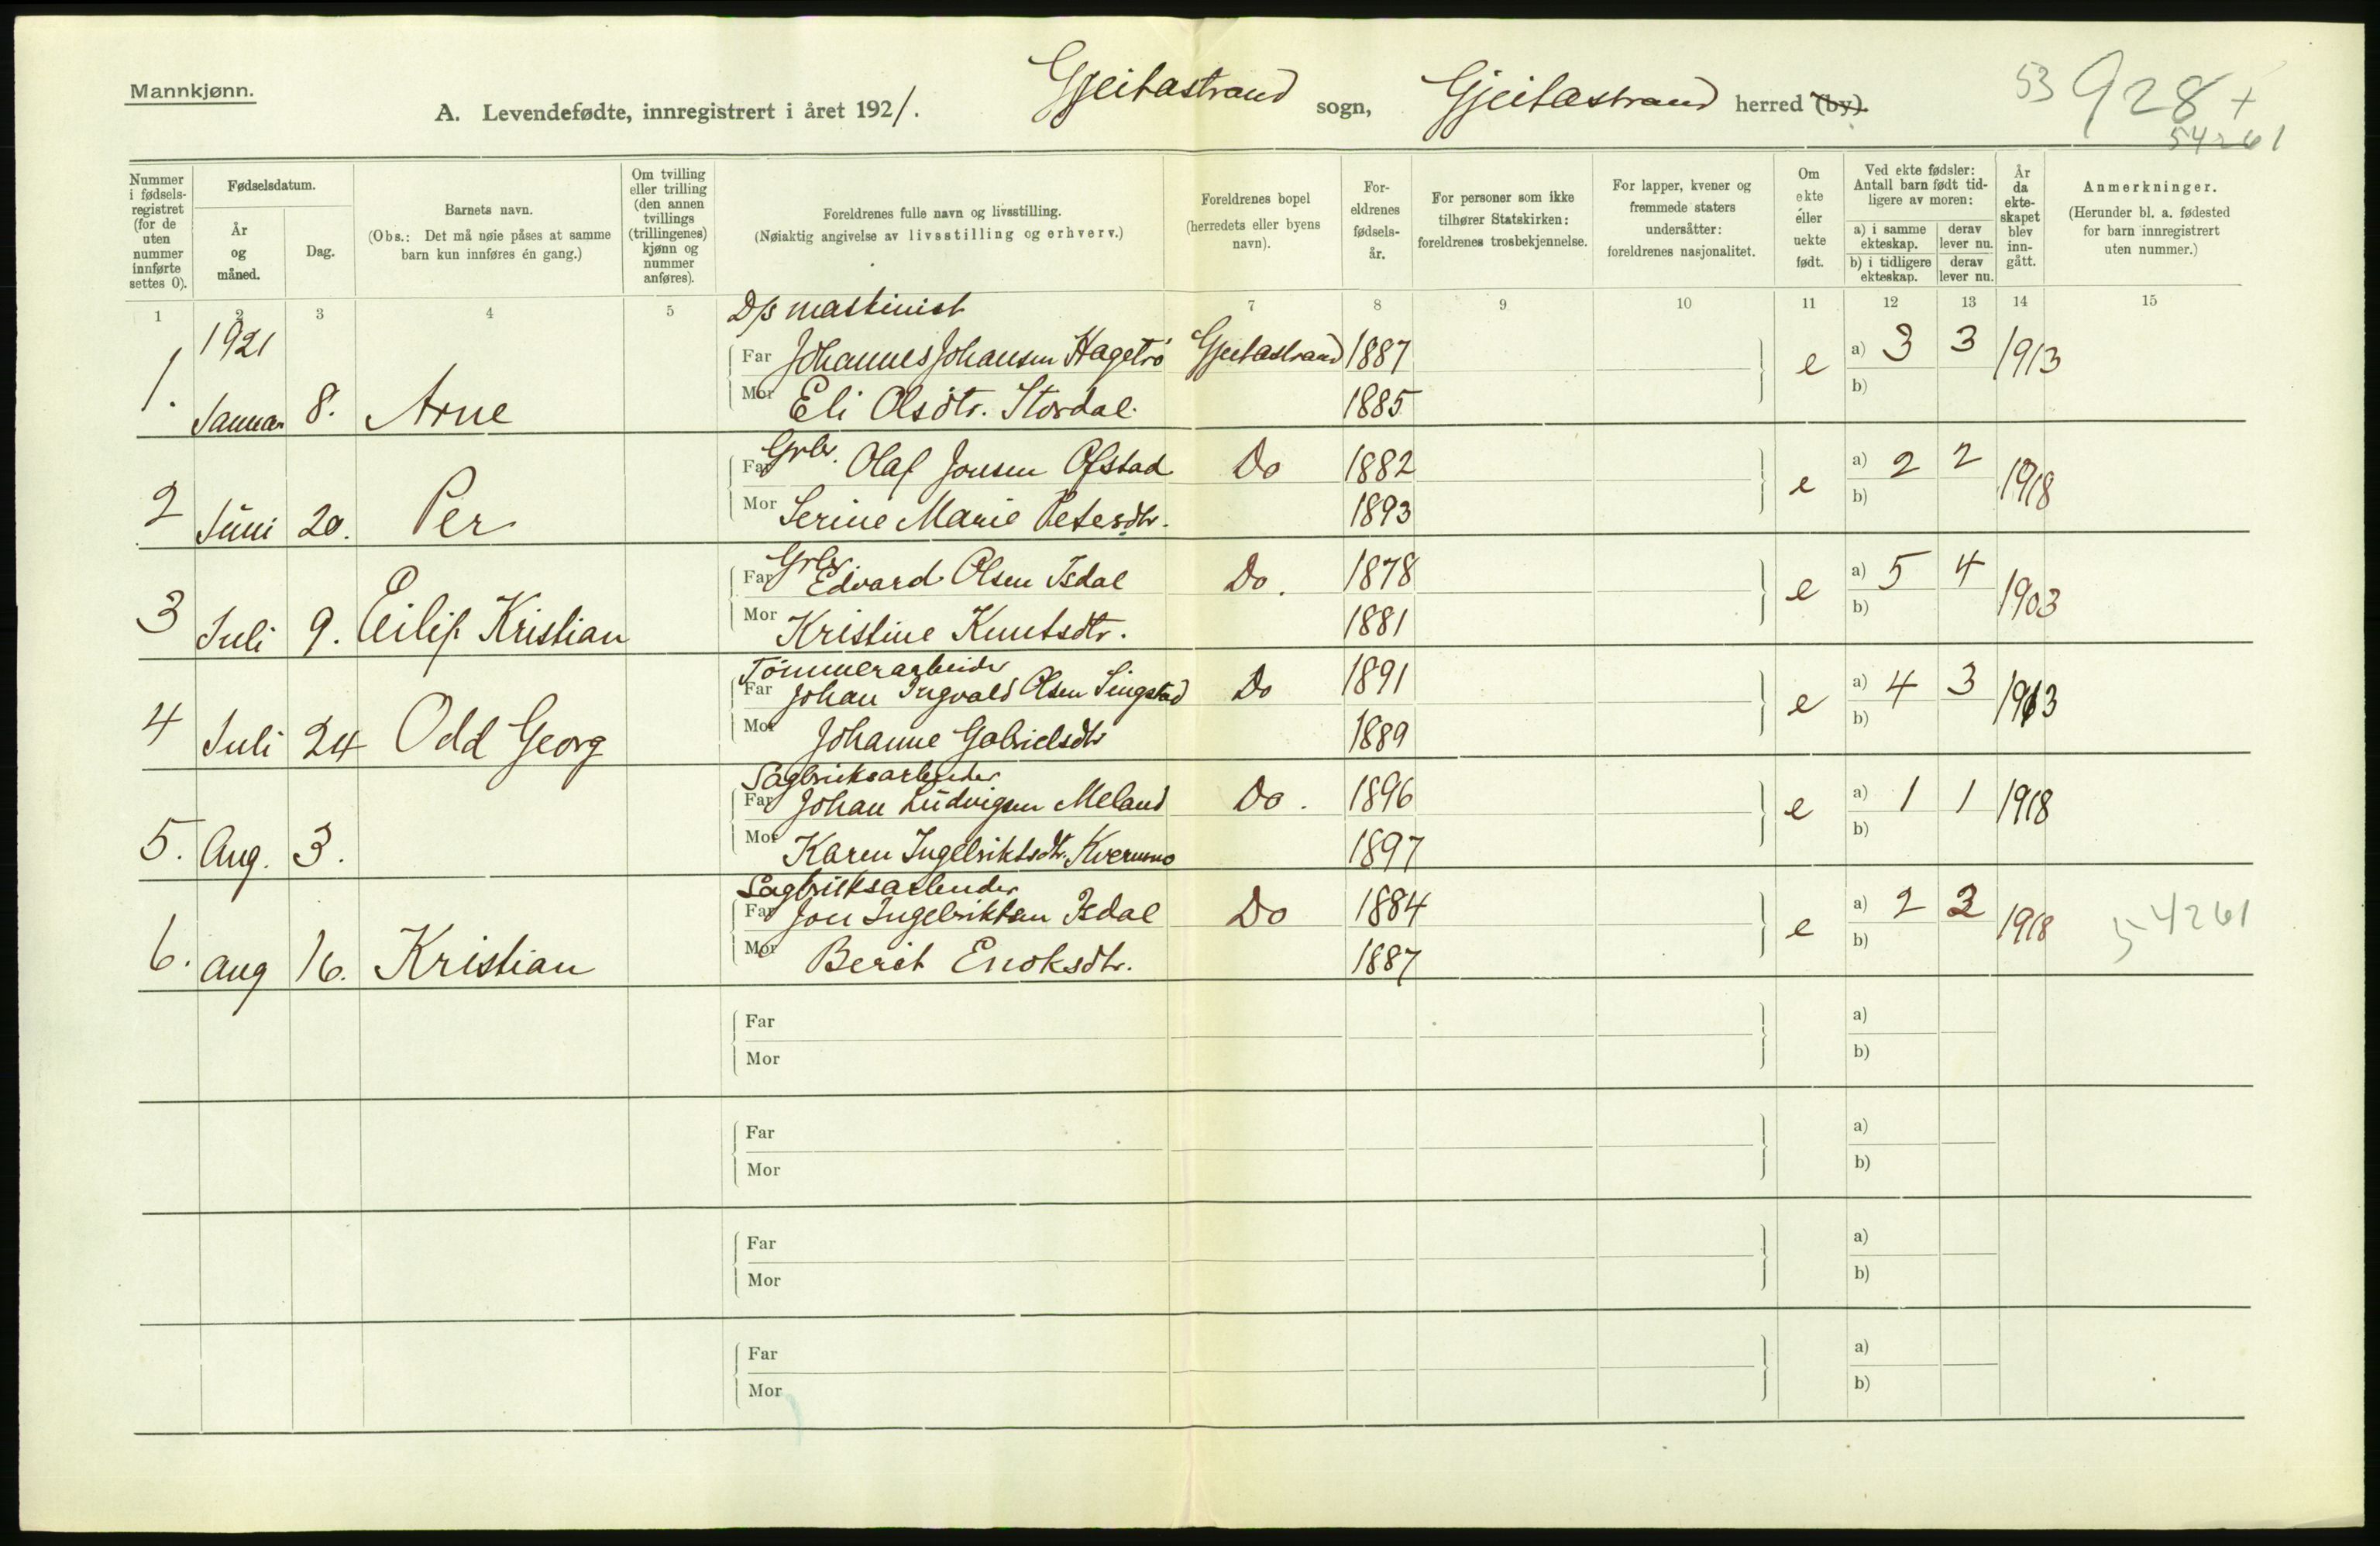 Mannkjønn.
A. Levendefødte, innregistrert i året 1921. Gjeitastrand sogn, Gjeitastrand herred (by).
53 928 +
54261
Nummer i fødselsregistret (for de uten nummer innførte settes 0).
Fødselsdatum.
År og måned.
Dag.
Barnets navn.
(Obs.: Det må nøie påses at samme barn kun innføres én gang.)
Om tvilling eller trilling (den annen tvillings (trillingenes) kjønn og nummer anføres).
Foreldrenes fulle navn og livsstilling.
(Nøiaktig angivelse av livsstilling og erhverv.)
Foreldrenes bopel (herredets eller byens navn).
For-eldrenes fødsels-år.
For personer som ikke tilhører Statskirken: foreldrenes trosbekjennelse.
For lapper, kvener og fremmede staters undersåtter: foreldrenes nasjonalitet.
Om ekte eller uekte født.
Ved ekte fødsler: Antall barn født tidligere av moren:
a) i samme ekteskap. derav lever nu.
b) i tidligere ekteskap. derav lever nu.
År da ekteskapet blev inngått.
Anmerkninger.
(Herunder bl. a. fødested for barn innregistrert uten nummer.)
1 2 3 4 5 7 8 9 10 11 12 13 14 15
1921
D/s maskinist
1. Januar 8. Arne
Far Johannes Johansen Hagetrø Gjeitastrand 1887 e a) 3 3 1913
Mor Eli Olsdtr. Stordal. 1885 b)
2 Juni 20. Per
Far Grbr. Olaf Jonsen Ofstad Do 1882 e a) 2 2 1918
Mor Serine Marie Petersdtr. 1893 b)
3 Juli 9. Eilif Kristian
Far Grbr Edvard Olsen Isdal Do. 1878 e a) 5 4 1903
Mor Kristine Knutsdtr. 1881 b)
Tømmerarbeider
4 Juli 24 Odd Georg
Far Johan Ingvald Olsen Singstad Do 1891 e a) 4 3 1913
Mor Johanne Gabrielsdtr 1889 b)
Sagbruksarbeider
5. Aug. 3.
Far Johan Ludvigsen Meland Do. 1896 e a) 1 1 1918
Mor Karen Ingebriktsdtr. Kvernmo 1897 b)
Sagbruksarbeider
6. Aug 16. Kristian
Far Jon Ingebriktsen Isdal Do 1884 e a) 2 2 1918 54261
Mor Berit Enoksdtr. 1887 b)
Far a)
Mor b)
Far a)
Mor b)
Far a)
Mor b)
Far a)
Mor b)